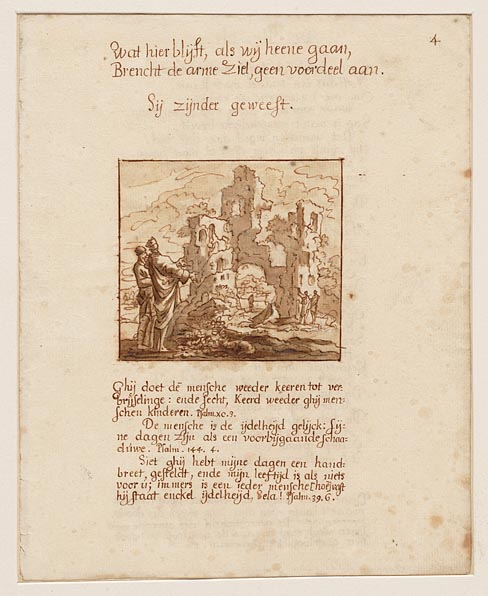 4
Wat hier blijft, als wij heene gaan,
Brencht de arme Ziel, geen voordeel aan.
Sij zijnder geweest.
Ghij doet dē mensche weeder keeren tot ver-
brijselinge: ende secht, Keerd weeder ghij men-
schen kinderen. Psalm. xc. 3.
De mensche is de ijdelheijd gelijck: Sij-
ne dagen zijn als een voorbijgaande schaa-
duwe. Psalm. 144. 4.
Siet ghij hebt mijne dagen een hand-
breet, gesteldt, ende mijn leeftijd is als niets
voor u; immers is een ieder mensche [hoe] vast
hij staat enckel ijdelheijd, Sela! Psalm. 39. 6.